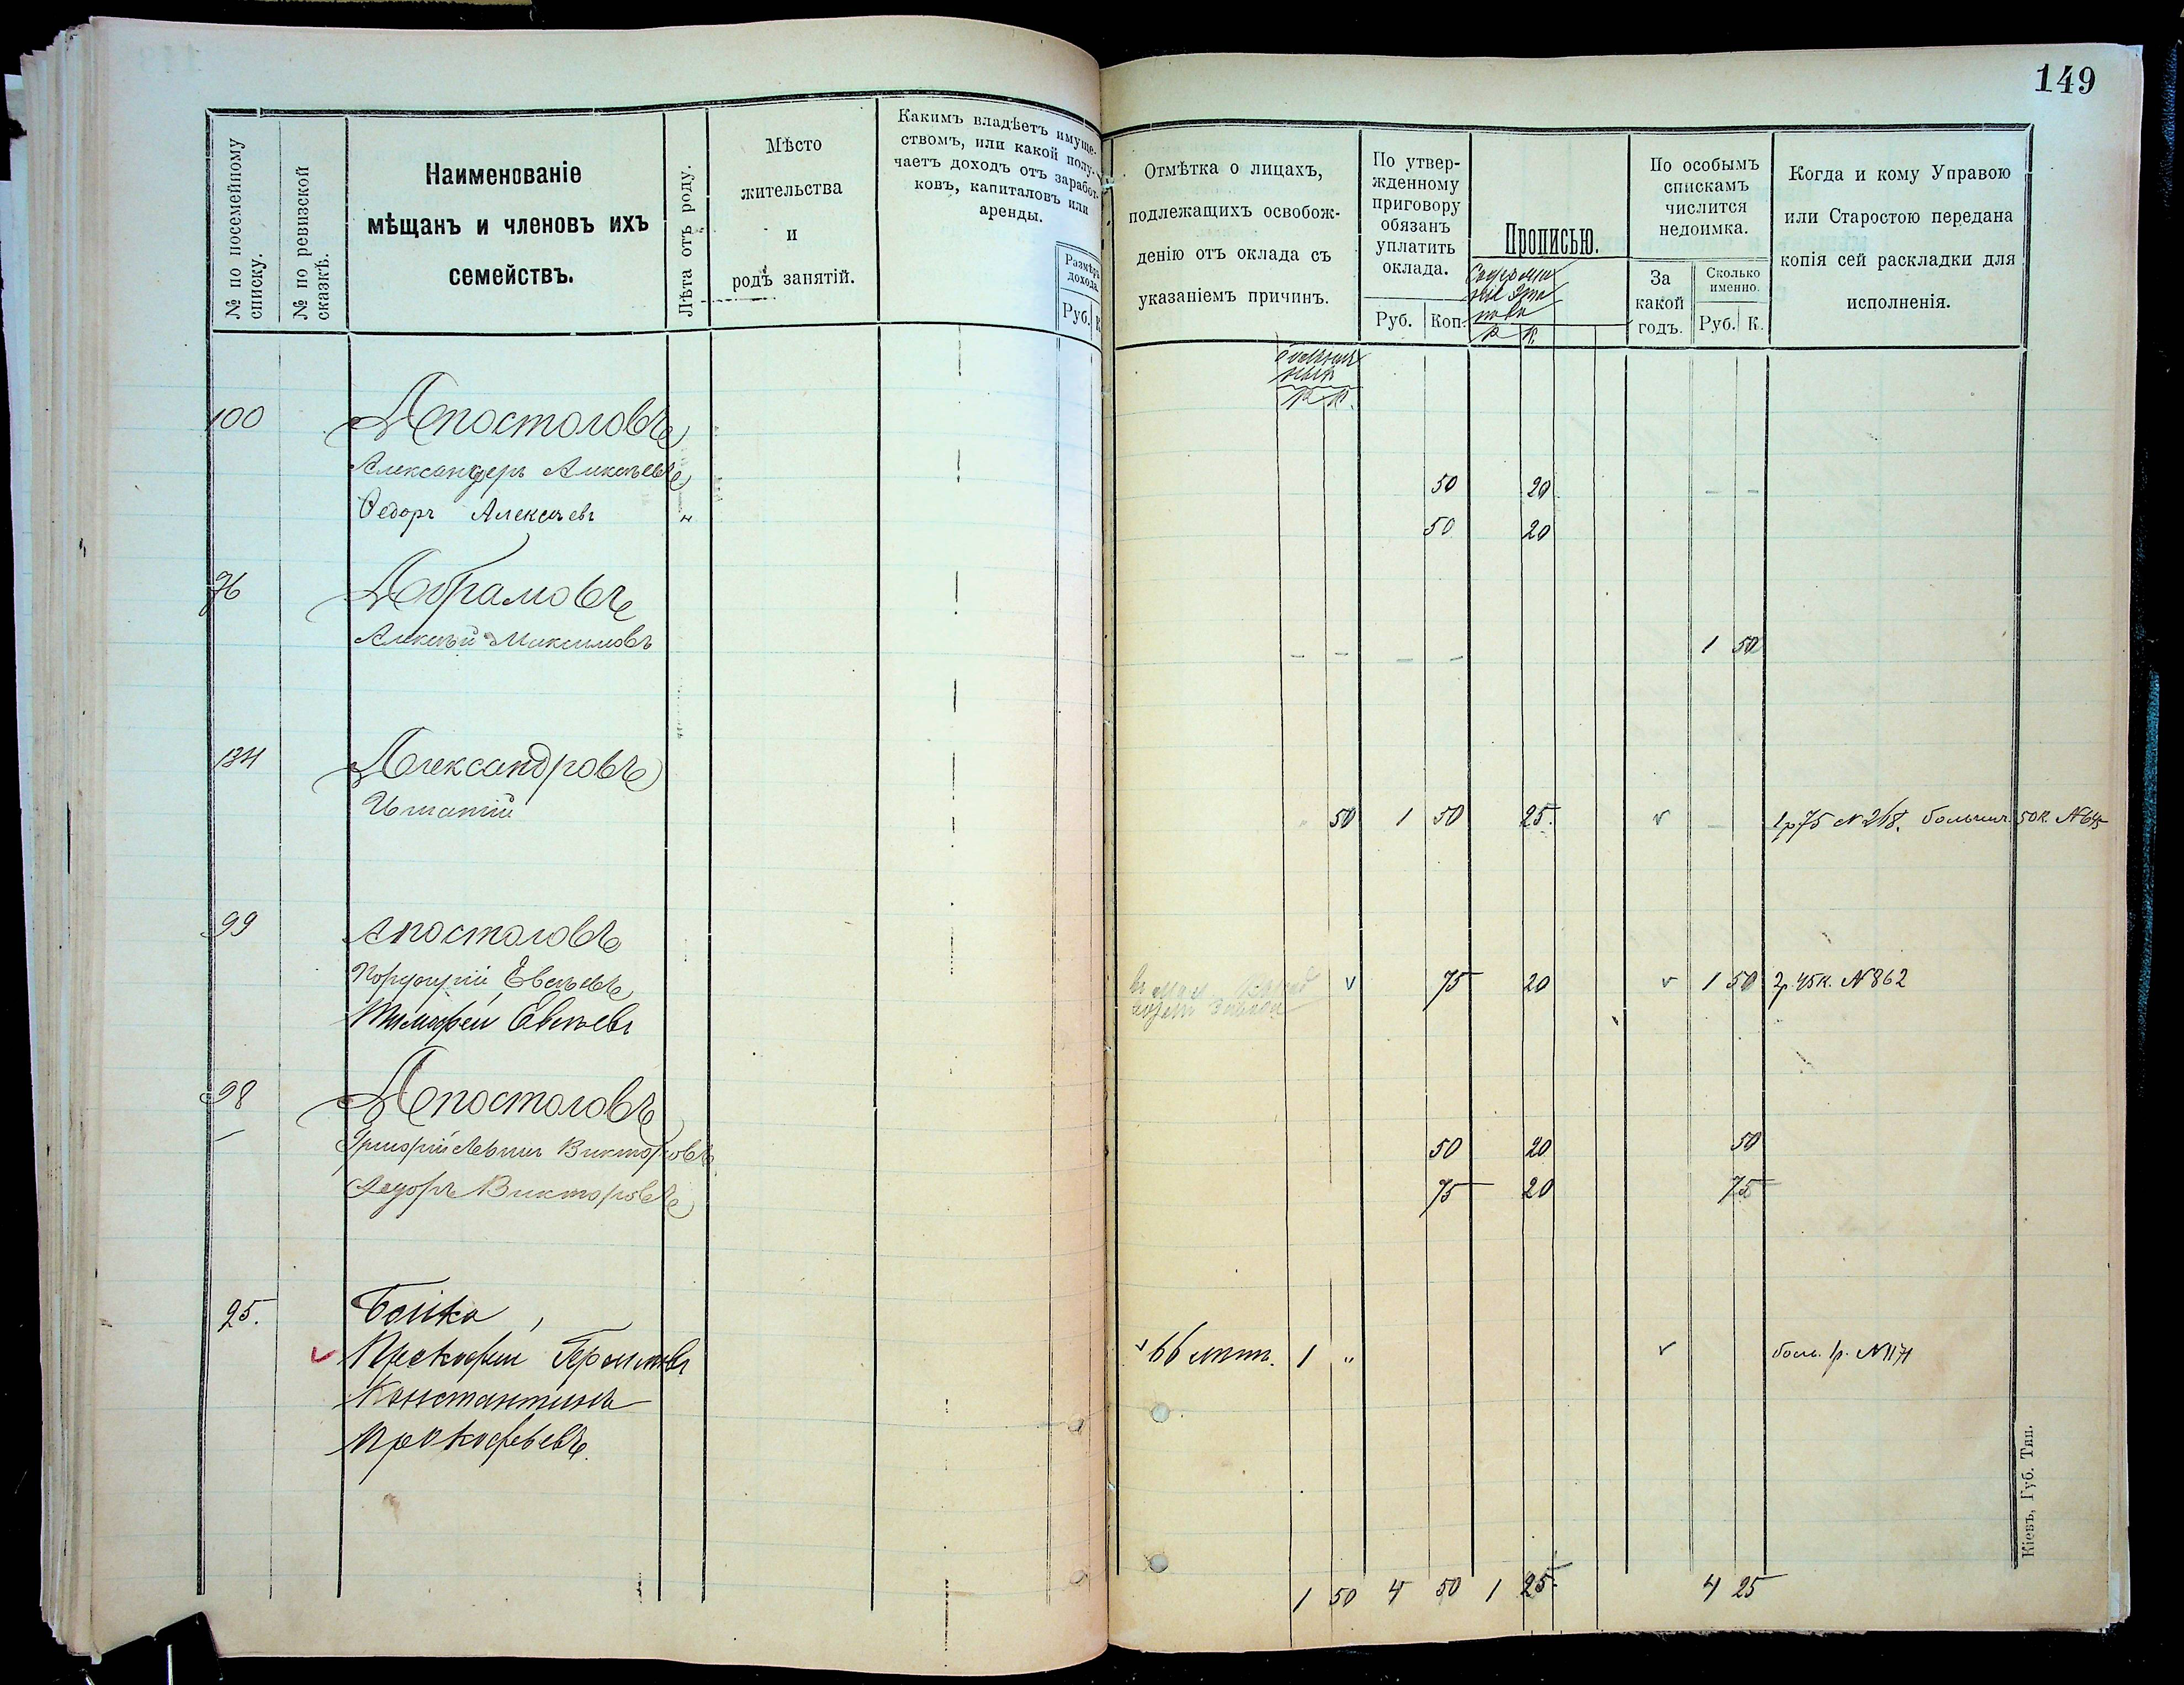 149
№ по посемейному списку.
№ по ревизской сказкѣ.
Наименованіе
мѣщанъ и членовъ ихъ
семействъ.
Лѣта отъ роду.
Мѣсто
жительства
и
родъ занятій.
Какимъ владѣетъ имуще-
ствомъ, или какой полу-
чаетъ доходъ отъ заработ-
ковъ, капиталовъ или
аренды.
Размѣръ
дохода.
Руб. К.
Отмѣтка о лицахъ,
подлежащихъ освобож-
денію отъ оклада съ
указаніемъ причинъ.
По утвер-
жденному
приговору
обязанъ
уплатить
оклада.
Руб. Коп.
Прописью.
Р К.
По особымъ
спискамъ
числится
недоимка.
За
какой
годъ.
Сколько
именно.
Руб. К.
Когда и кому Управою
или Старостою передана
копія сей раскладки для
исполненія.
Р К.
100 Апостоловъ
Александеръ Алексѣевъ 50 20 - -
Ѳедоръ Алексѣевъ " 50 20
76 Абрамовъ
Алексѣй Максимовъ - - - - 1 50
134 Александровъ
Игнатій 50 1 50 25. v - 1р75 N 218. больнич. 50к. N645
99 Апостоловъ
Порфирій Евсѣевъ v 75 20 v 1 50 2р.45к. N862
Тимофей Евсѣевъ
98 Апостоловъ
Григорій Викторовъ 50 20 50
Федоръ Викторовъ 75 20 75
25. Бойко
v Прокофий v 66 лѣтъ. 1 " v боль. 1р. N1171
Константинъ
Прокофьевъ.
1 50 4 50 1 25. 4 25
Кіевъ, Губ. Тип.